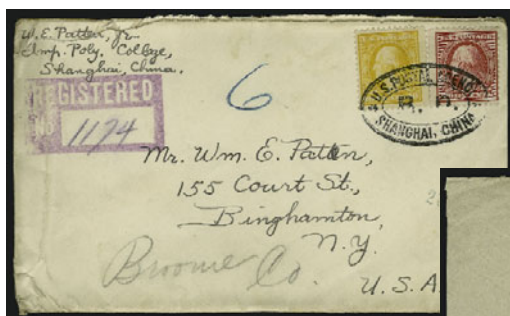 W. E. Patten, Jr.
Imp. Poly. College,
Shanghai, China.
REGISTERED
No 1174
6
U.S. POSTAL AGENCY
SHANGHAI, CHINA
Mr. Wm. E. Patten,
155 Court St.,
Binghamton,
N.Y.
Broome Co.
U.S.A.